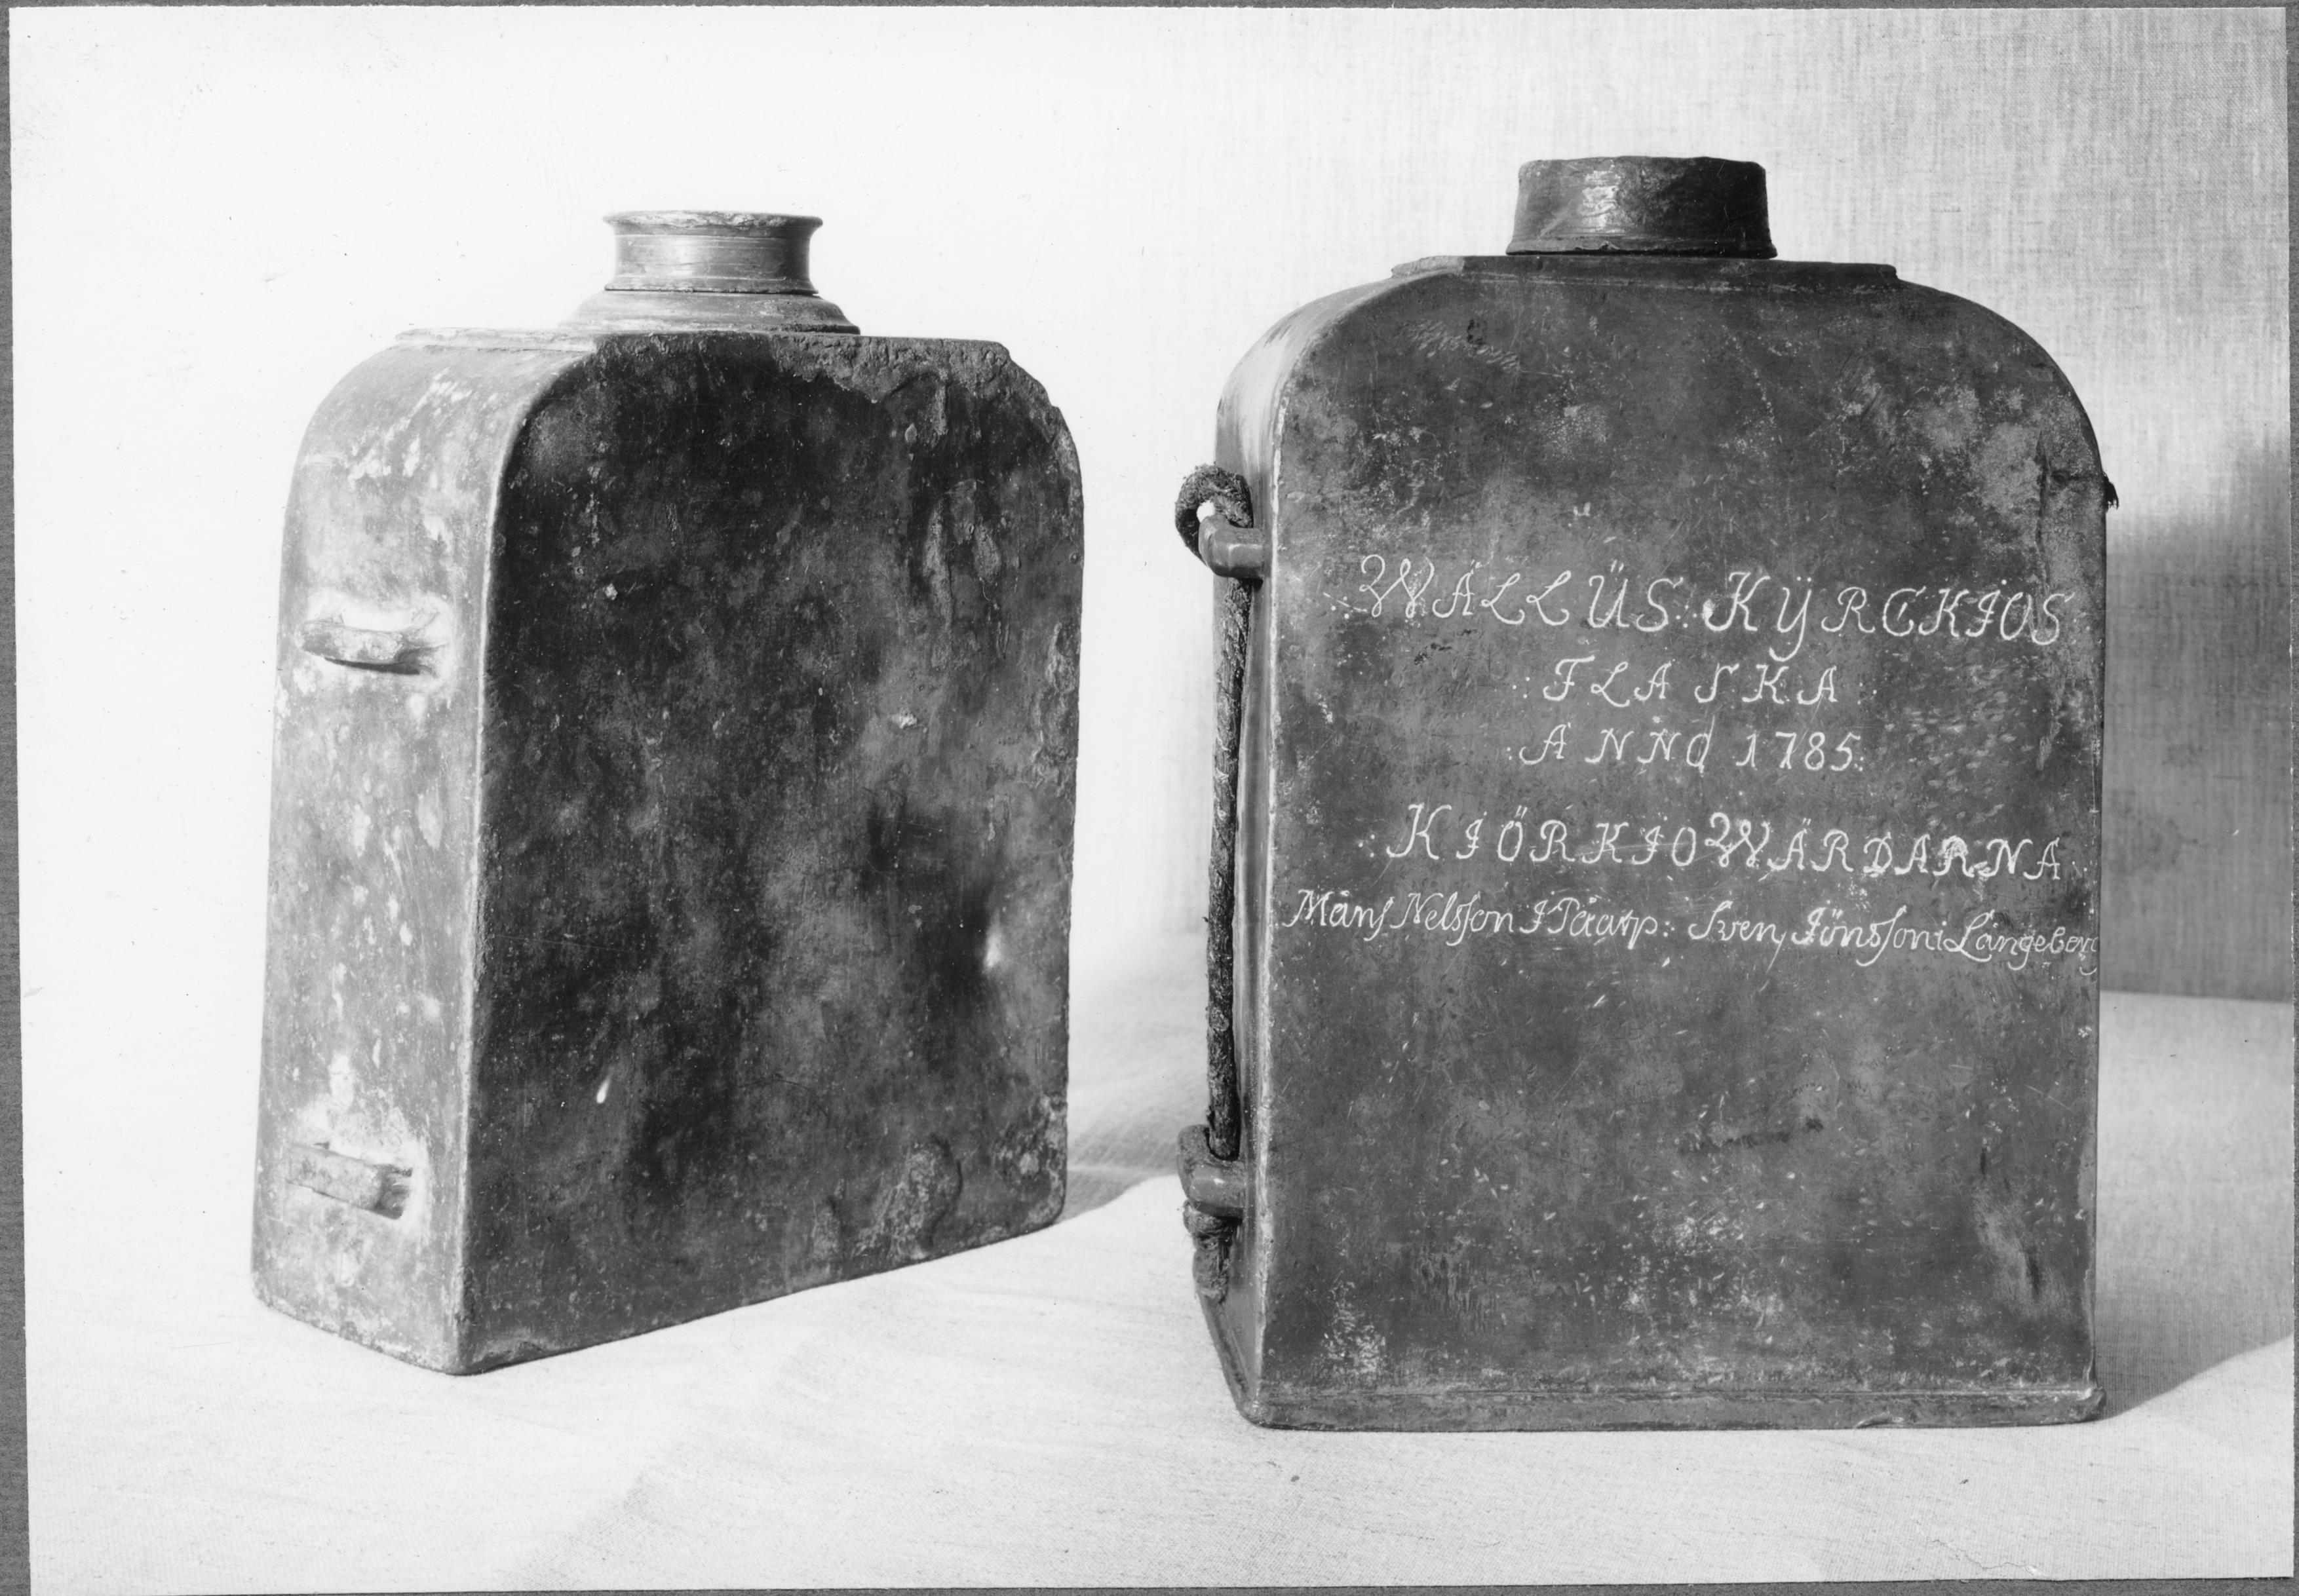 :WÄLLÜS: KŸRCKIOS
:FLASKA:
:ANNO 1785:
:KIÖRKIOWÄRDARNA:
Måns Nelsson I Påarp: Sven Jönsson i Långeberg